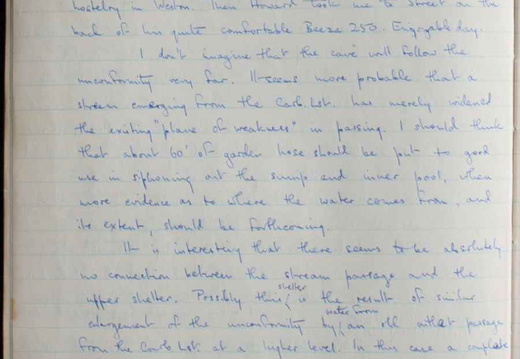 hostelry in Wedon. Then Howard took me to Street on the
back of his quite comfortable Beeza 250. Enjoyable day.
I don't imagine that the cave will follow the
unconformity very far. It seems more probable that a
stream emerging from the Carb. Lst. has merely widened
the existing "plane of weakness" in passing. I should think
that about 60' of garden hose should be put to good
use in siphoning out the sump and inner pool, when
more evidence as to where the water comes from, and
its extent, should be forthcoming.
It is interesting that there seems to be absolutely
no connection between the stream passage and the
upper shelter. Possibly this shelter is the result of similar
enlargement of the unconformity by water from an old outlet passage
from the Carb Lst. at a higher level. In this case a complete